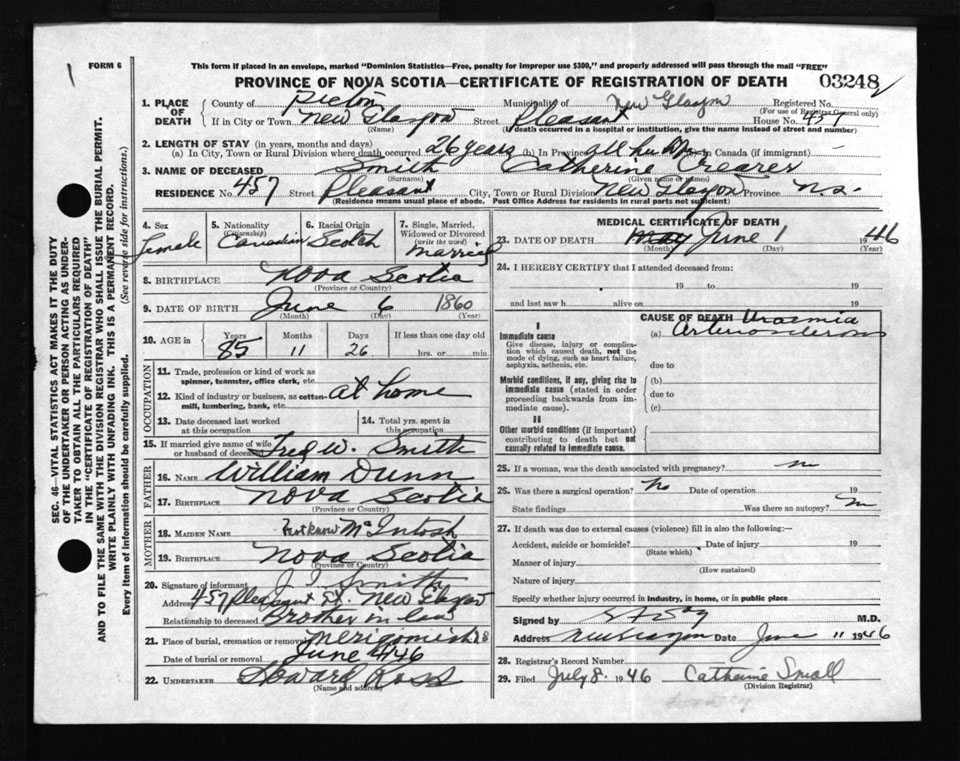 FORM 6
This form if placed in an envelope, marked "Dominion Statistics—Free, penalty for improper use $300," and properly addressed will pass through the mail "FREE"
PROVINCE OF NOVA SCOTIA—CERTIFICATE OF REGISTRATION OF DEATH 03248
1. PLACE OF DEATH County of Pictou Municipality of New Glasgow Registered No.
(For use of Registrar General only)
If in City or Town New Glasgow Street Pleasant House No. 457
(Name) (If death occurred in a hospital or institution, give the name instead of street and number)
2. LENGTH OF STAY (in years, months and days)
(a) In City, Town or Rural Division where death occurred 26 years (b) In Province all her life in Canada (if immigrant)
3. NAME OF DECEASED Smith Catherine
(Surname) (Given name or names)
RESIDENCE No. 457 Street Pleasant City, Town or Rural Division New Glasgow Province N.S.
(Residence means usual place of abode. Post Office Address for residents in rural parts not sufficient)
4. Sex Female
5. Nationality (Citizenship) Canadian
6. Racial Origin Scotch
7. Single, Married, Widowed or Divorced (write the word) Married
8. BIRTHPLACE Nova Scotia
(Province or Country)
9. DATE OF BIRTH June 6 1860
(Month) (Day) (Year)
10. AGE in Years Months Days If less than one day old
85 11 26 hrs. or min.
OCCUPATION
11. Trade, profession or kind of work as spinner, teamster, office clerk, etc.
12. Kind of industry or business, as cotton-mill, lumbering, bank, etc. at home
13. Date deceased last worked at this occupation
14. Total yrs. spent in this occupation
15. If married give name of wife or husband of deceased Fred W. Smith
FATHER
16. NAME William Dunn
17. BIRTHPLACE Nova Scotia
(Province or Country)
MOTHER
18. MAIDEN NAME Not Know McIntosh
19. BIRTHPLACE Nova Scotia
(Province or Country)
20. Signature of informant Smith
Address 457 Pleasant St. New Glasgow
Relationship to deceased Brother in law
21. Place of burial, cremation or removal Merigomish N.S
Date of burial or removal June 4 46
22. UNDERTAKER Howard Ross
(Name and address)
MEDICAL CERTIFICATE OF DEATH
23. DATE OF DEATH May June 1 1946
(Month) (Day) (Year)
24. I HEREBY CERTIFY that I attended deceased from:
19 to 19
and last saw h alive on 19
CAUSE OF DEATH
I
Immediate cause
Give disease, injury or complication which caused death, not the mode of dying, such as heart failure, asphyxia, asthenia, etc.
(a) Uraemia
Arteriosclerosis
due to
Morbid conditions, if any, giving rise to immediate cause (stated in order proceeding backwards from immediate cause).
(b)
due to
(c)
II
Other morbid conditions (if important) contributing to death but not causally related to immediate cause.
25. If a woman, was the death associated with pregnancy? no
26. Was there a surgical operation? No Date of operation 19
State findings Was there an autopsy? No
27. If death was due to external causes (violence) fill in also the following:—
Accident, suicide or homicide? Date of injury 19
(State which)
Manner of injury
(How sustained)
Nature of injury
Specify whether injury occurred in industry, in home, or in public place
Signed by M.D.
Address New Glasgow Date June 11 1946
28. Registrar's Record Number
29. Filed July 8. 1946 Catherine Small
(Division Registrar)
SEC. 46—VITAL STATISTICS ACT MAKES IT THE DUTY OF THE UNDERTAKER OR PERSON ACTING AS UNDERTAKER TO OBTAIN ALL THE PARTICULARS REQUIRED IN THE "CERTIFICATE OF REGISTRATION OF DEATH" AND TO FILE THE SAME WITH THE DIVISION REGISTRAR WHO SHALL ISSUE THE BURIAL PERMIT.
WRITE PLAINLY WITH UNFADING INK. THIS IS A PERMANENT RECORD.
Every item of information should be carefully supplied. (See reverse side for instructions.)